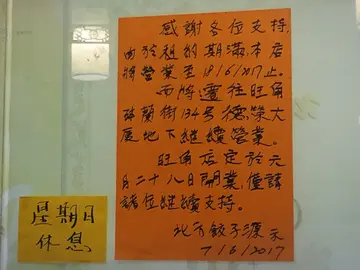 感謝各位支持,
由於租約期滿,本店
將營業至18/6/2017止。
而將遷往旺角
砵蘭街134号德榮大
厦地下繼續營業。
旺角店定於六
月二十八日開業,僅請
諸位継續支持。
北方餃子源示
7/6/2017
星期日
休息